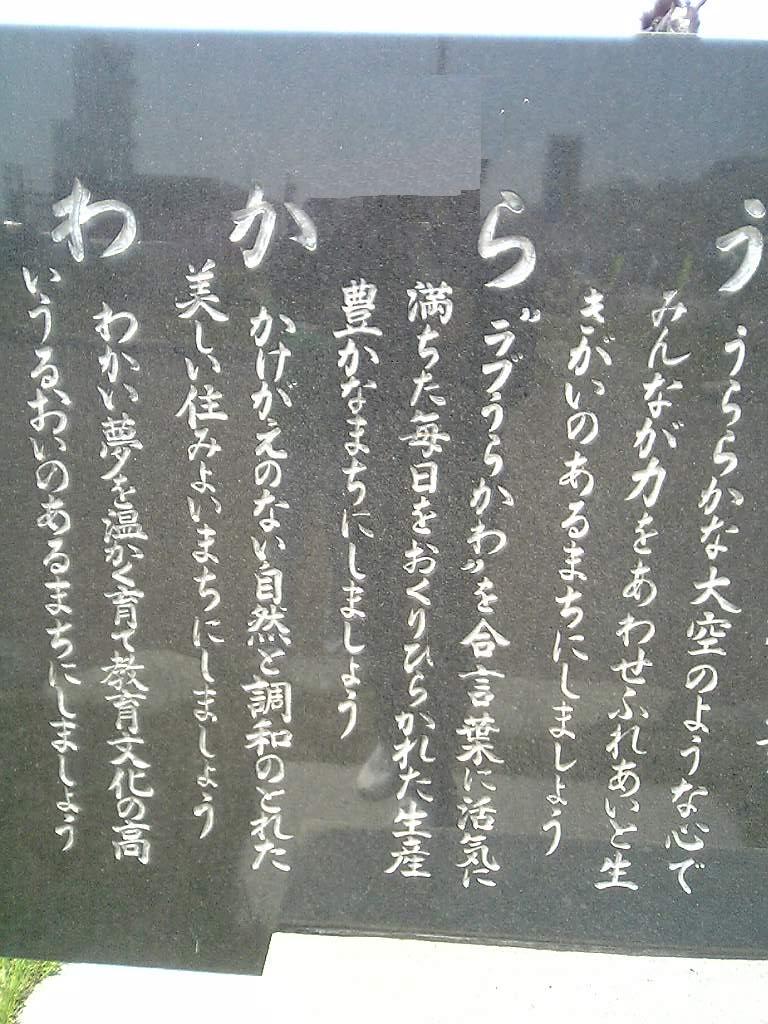 う
うららかな大空のような心で
みんなが力をあわせふれあいと生
きがいのあるまちにしましょう
ら
〝ラブうらかわ〟を合言葉に活気に
満ちた毎日をおくりひらかれた生産
豊かなまちにしましょう
か
かけがえのない自然と調和のとれた
美しい住みよいまちにしましょう
わ
わかい夢を温かく育て教育文化の高
いうるおいのあるまちにしましょう